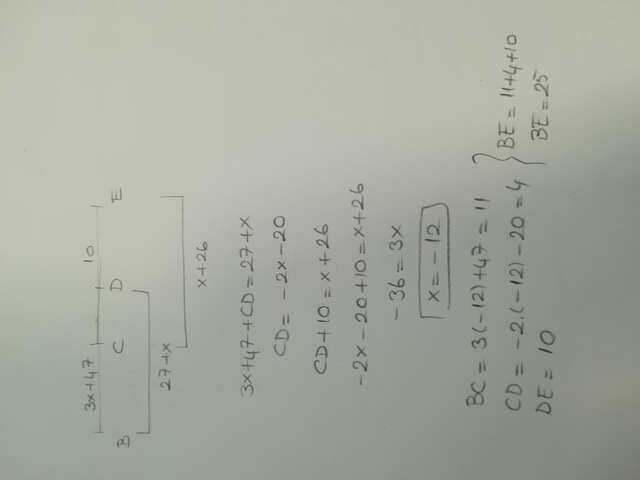 3x+47 10
B C D E
27+x
x+26
3x+47+CD=27+x
CD=-2x-20
CD+10=x+26
-2x-20+10=x+26
-36=3x
x=-12
BC = 3(-12)+47 = 11
CD = -2.(-12)-20 = 4 } BE = 11+4+10
DE = 10 BE = 25